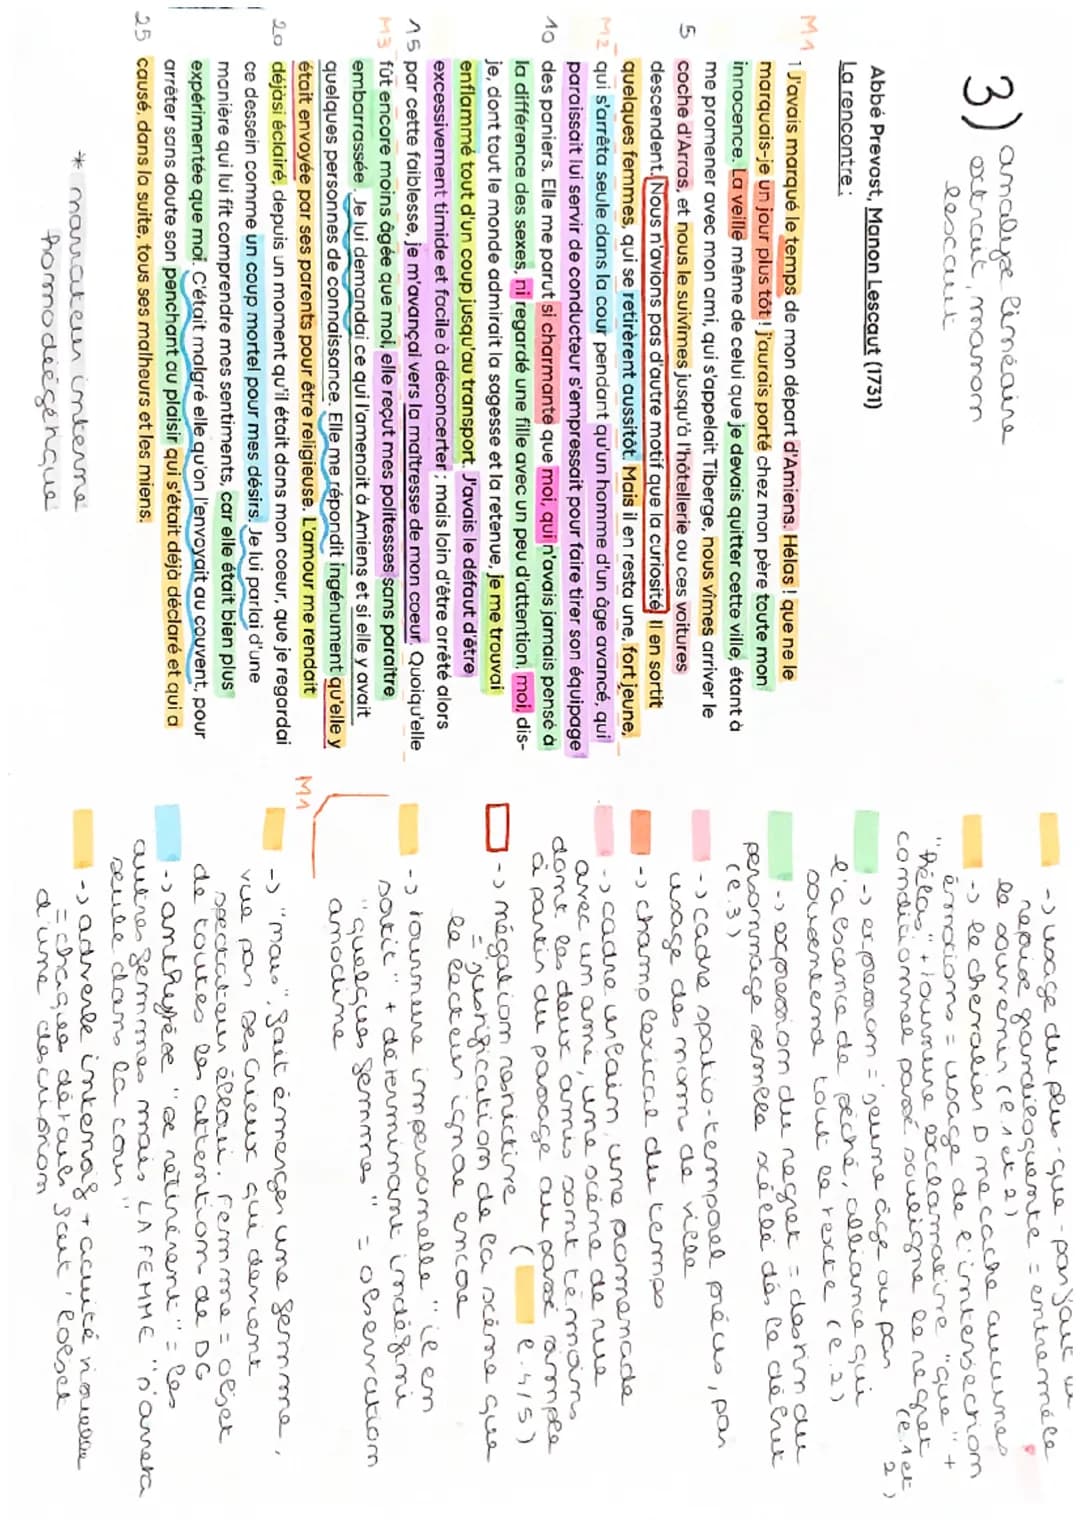 3) analyse linéaire
extrait, manon
lescaut
Abbé Prevast, Manon Lescaut (1731)
La rencontre :
M1 1 J'avais marqué le temps de mon départ d'Amiens. Hélas ! que ne le
marquais-je un jour plus tôt ! j'aurais porté chez mon père toute mon
innocence. La veille même de celui que je devais quitter cette ville, étant à
me promener avec mon ami, qui s'appelait Tiberge, nous vîmes arriver le
5 coche d'Arras, et nous le suivîmes jusqu'à l'hôtellerie ou ces voitures
descendent. Nous n'avions pas d'autre motif que la curiosité. Il en sortit
quelques femmes, qui se retirèrent aussitôt. Mais il en resta une, fort jeune,
M2 qui s'arrêta seule dans la cour pendant qu'un homme d'un âge avancé, qui
paraissait lui servir de conducteur s'empressait pour faire tirer son équipage
10 des paniers. Elle me parut si charmante que moi, qui n'avais jamais pensé à
la différence des sexes, ni regardé une fille avec un peu d'attention, moi, dis-
je, dont tout le monde admirait la sagesse et la retenue, je me trouvai
enflammé tout d'un coup jusqu'au transport. J'avais le défaut d'être
excessivement timide et facile à déconcerter ; mais loin d'être arrêté alors
15 par cette faiblesse, je m'avançai vers la maîtresse de mon coeur. Quoiqu'elle
M3 fût encore moins âgée que moi, elle reçut mes politesses sans paraître
embarrassée. Je lui demandai ce qui l'amenait à Amiens et si elle y avait
quelques personnes de connaissance. Elle me répondit ingénument qu'elle y
était envoyée par ses parents pour être religieuse. L'amour me rendait
20 déjàsi éclairé, depuis un moment qu'il était dans mon coeur, que je regardai
ce dessein comme un coup mortel pour mes désirs. Je lui parlai d'une
manière qui lui fit comprendre mes sentiments, car elle était bien plus
expérimentée que moi. C'était malgré elle qu'on l'envoyait au couvent, pour
arrêter sans doute son penchant au plaisir qui s'était déjà déclaré et qui a
25 causé, dans la suite, tous ses malheurs et les miens.
* narrateur interne
homodiégétique
-> usage du plus-que-parfait
reprise grandiloquente = entremêle
le souvenir (l.1 et 2)
-> le chevalier D ne cache aucunes
émotions = usage de l'intersection
"hélas" + tournure exclamative "que" +
conditionnel passé souligne le regret (l.1 et 2)
-> expression = jeune âge ou par
l'absence de péché, alliance qui
sousentend tout le texte (l.2)
-> expression du regret = destin du
personnage semble scéllé dès le début
(l.3)
-> cadre spatio-temporel précis, par
usage des noms de ville
-> champ lexical du temps
-> cadre anodin, une promenade
avec un ami, une scène de rue
dont les deux amis sont témoins
à partir du passage au passé simple
( l.4/5)
-> négation restrictive
= justification de la scène que
le lecteur ignore encore
-> tournure impersonnelle "il en
sortit" + déterminant indéfini
"quelques femmes" = observation
anodine
M1
-> "mais", fait émerger une femme,
vue par Des Grieux qui devient
spectateur ébloui. Femme = objet
de toutes les attentions de DG
-> antithèse "se retirèrent" = les
autres femmes mais LA FEMME "s'arreta
seule dans la cour"
-> adverbe intensif + acuité visuelle
= chaques détails font l'objet
d'une description